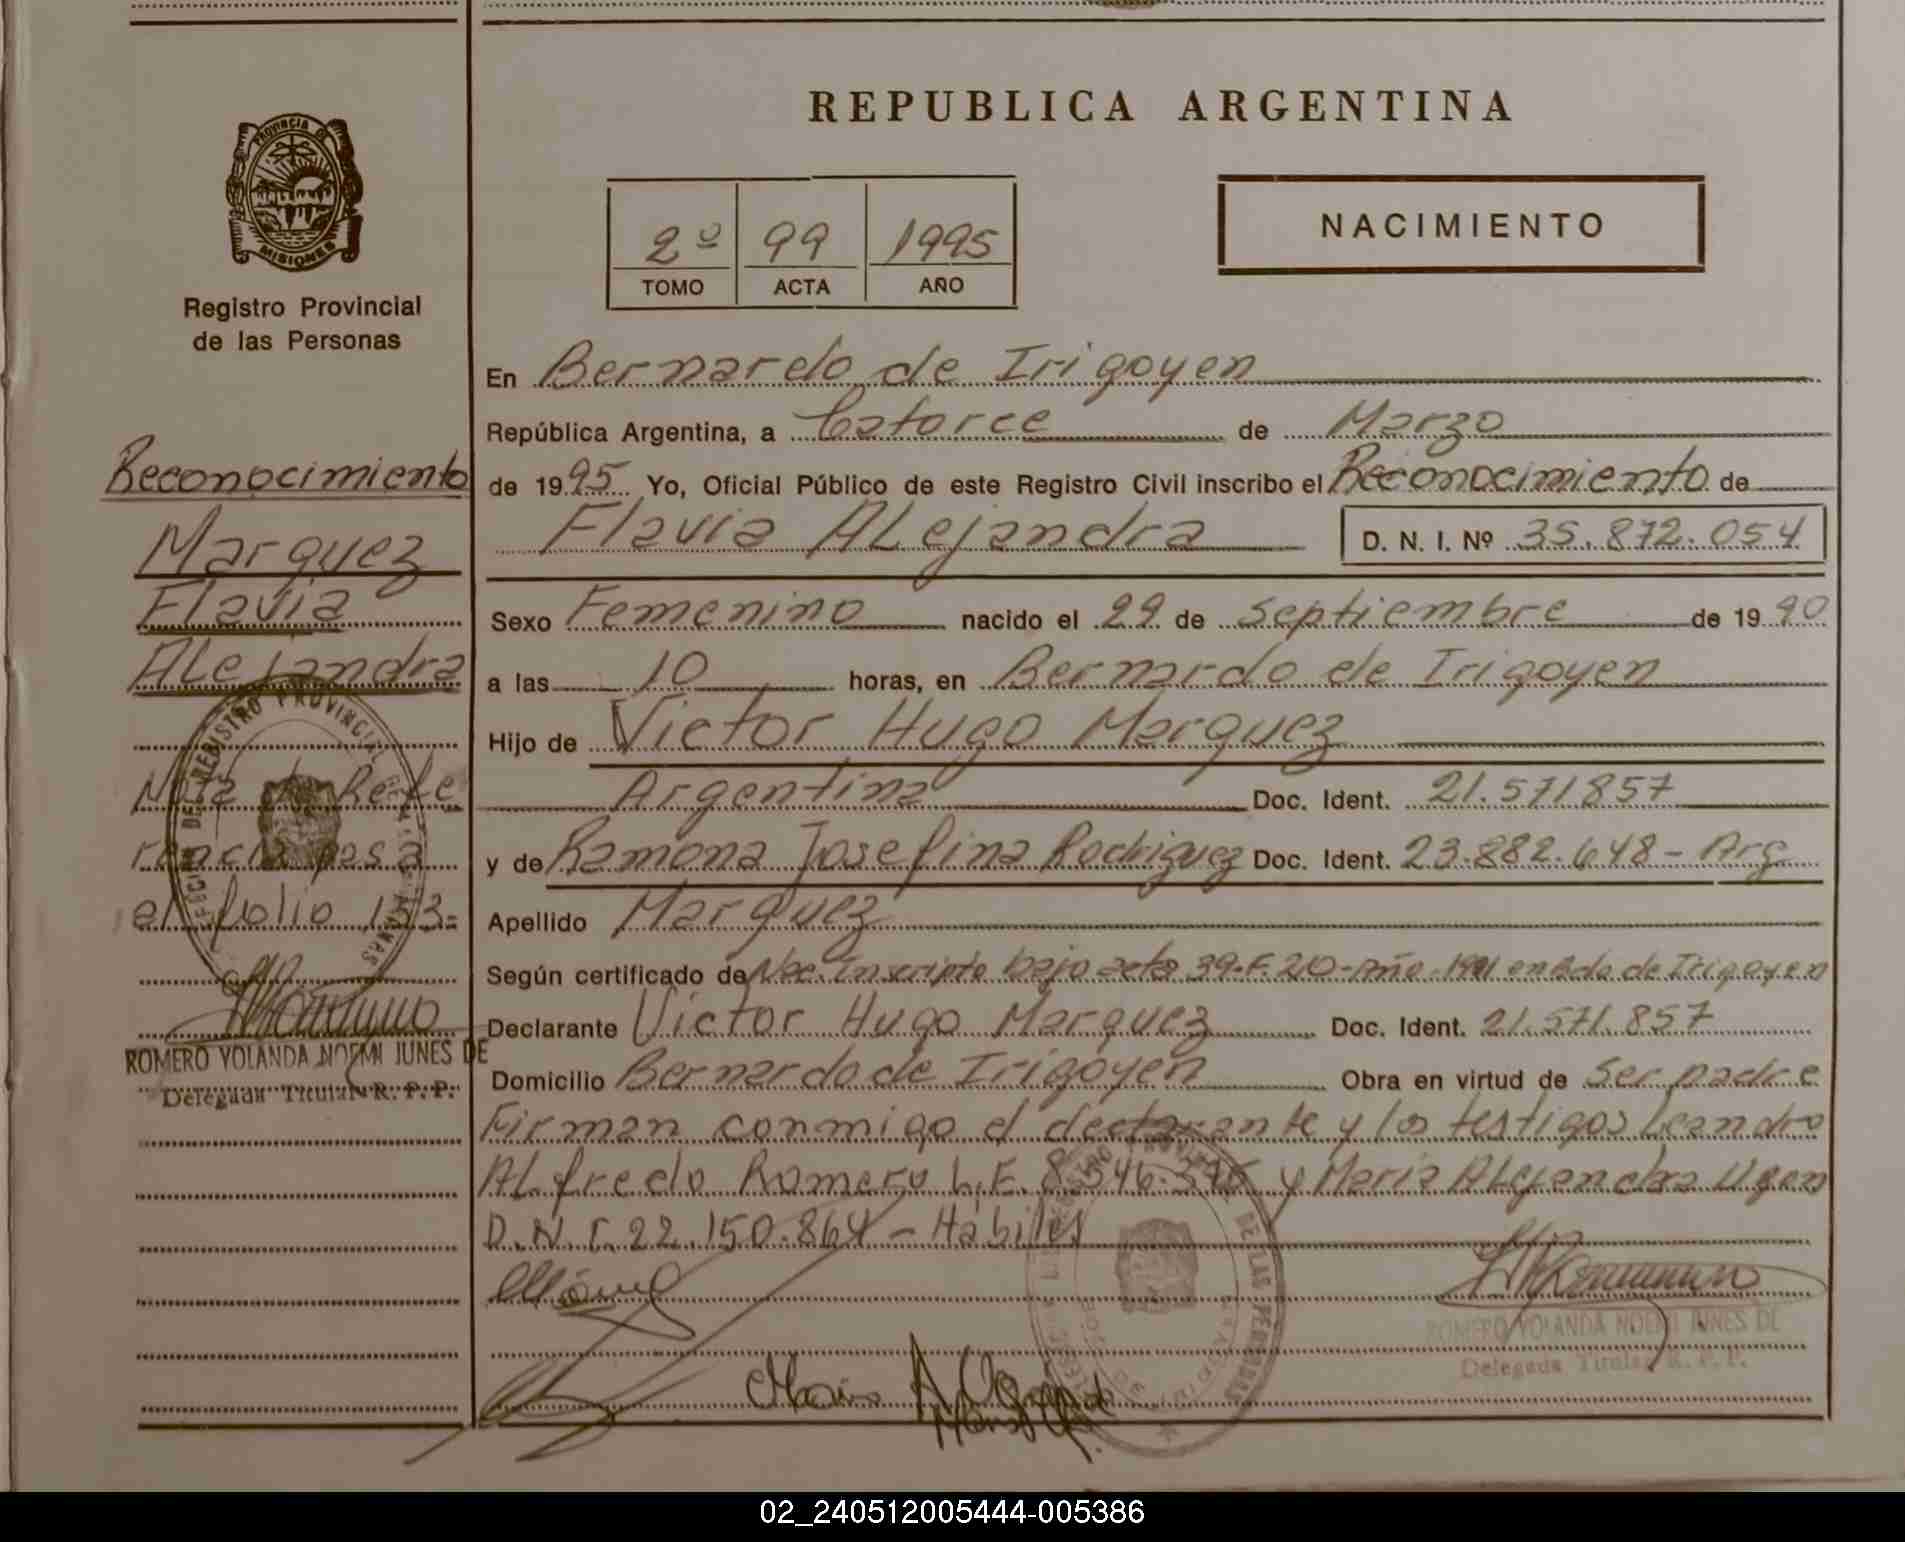 REPUBLICA ARGENTINA
PROVINCIA DE
MISIONES
Registro Provincial
de las Personas
2º 99 1995
TOMO ACTA AÑO
NACIMIENTO
Reconocimiento
Marquez
Flavia
Alejandra
Nota de Refe
rencia pasa
al folio 153=
ROMERO YOLANDA NOEMI JUNES DE
Delegada Titular R. P. P.
En Bernardo de Irigoyen
República Argentina, a Catorce de Marzo
de 1995 Yo, Oficial Público de este Registro Civil inscribo el Reconocimiento de
Flavia ALejandra D. N. I. Nº 35.872.054
Sexo Femenino nacido el 29 de Septiembre de 1990
a las 10 horas, en Bernardo de Irigoyen
Hijo de Victor Hugo Marquez
Argentina Doc. Ident. 21.571857
y de Ramona Josefina Rodriguez Doc. Ident. 23.882.648- Arg
Apellido Marquez
Según certificado de Nac. inscripto bajo acta 39-F.210-Año-1991 en Bdo de Irigoyen
Declarante Victor Hugo Marquez Doc. Ident. 21.571.857
Domicilio Bernardo de Irigoyen Obra en virtud de Ser padre
Firman conmigo el declarante y los testigos Leandro
ALfredo Romero L.E. 8.546. y Maria ALejandra
D.N.I. 22.150.864 - Hábiles
ROMERO YOLANDA NOEMI JUNES DE
Delegada Titular R. P. P.
02_240512005444-005386